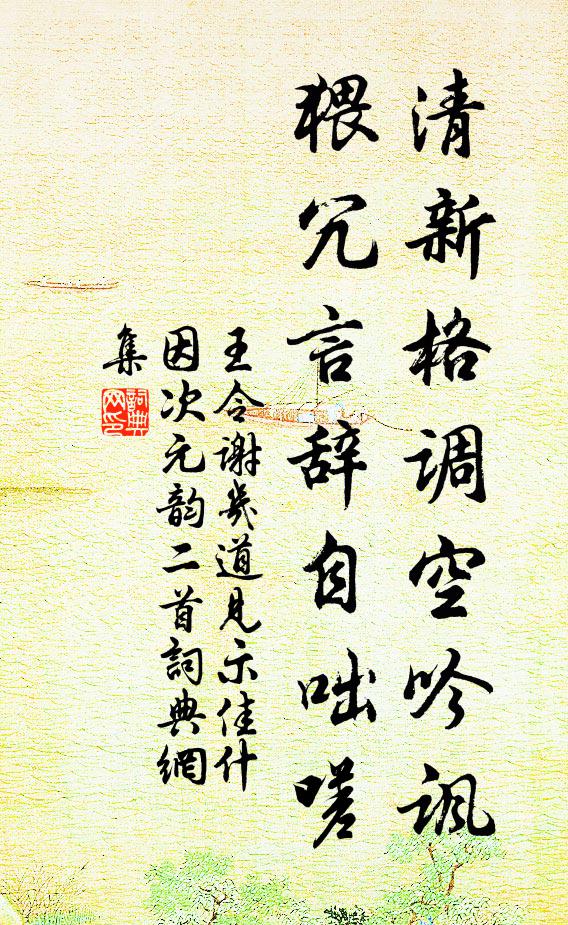 清新格调空吟讽
猥冗言辞自咄嗟
王令谢几道见示佳什
因次元韵二首詞典網
集
詞典網印